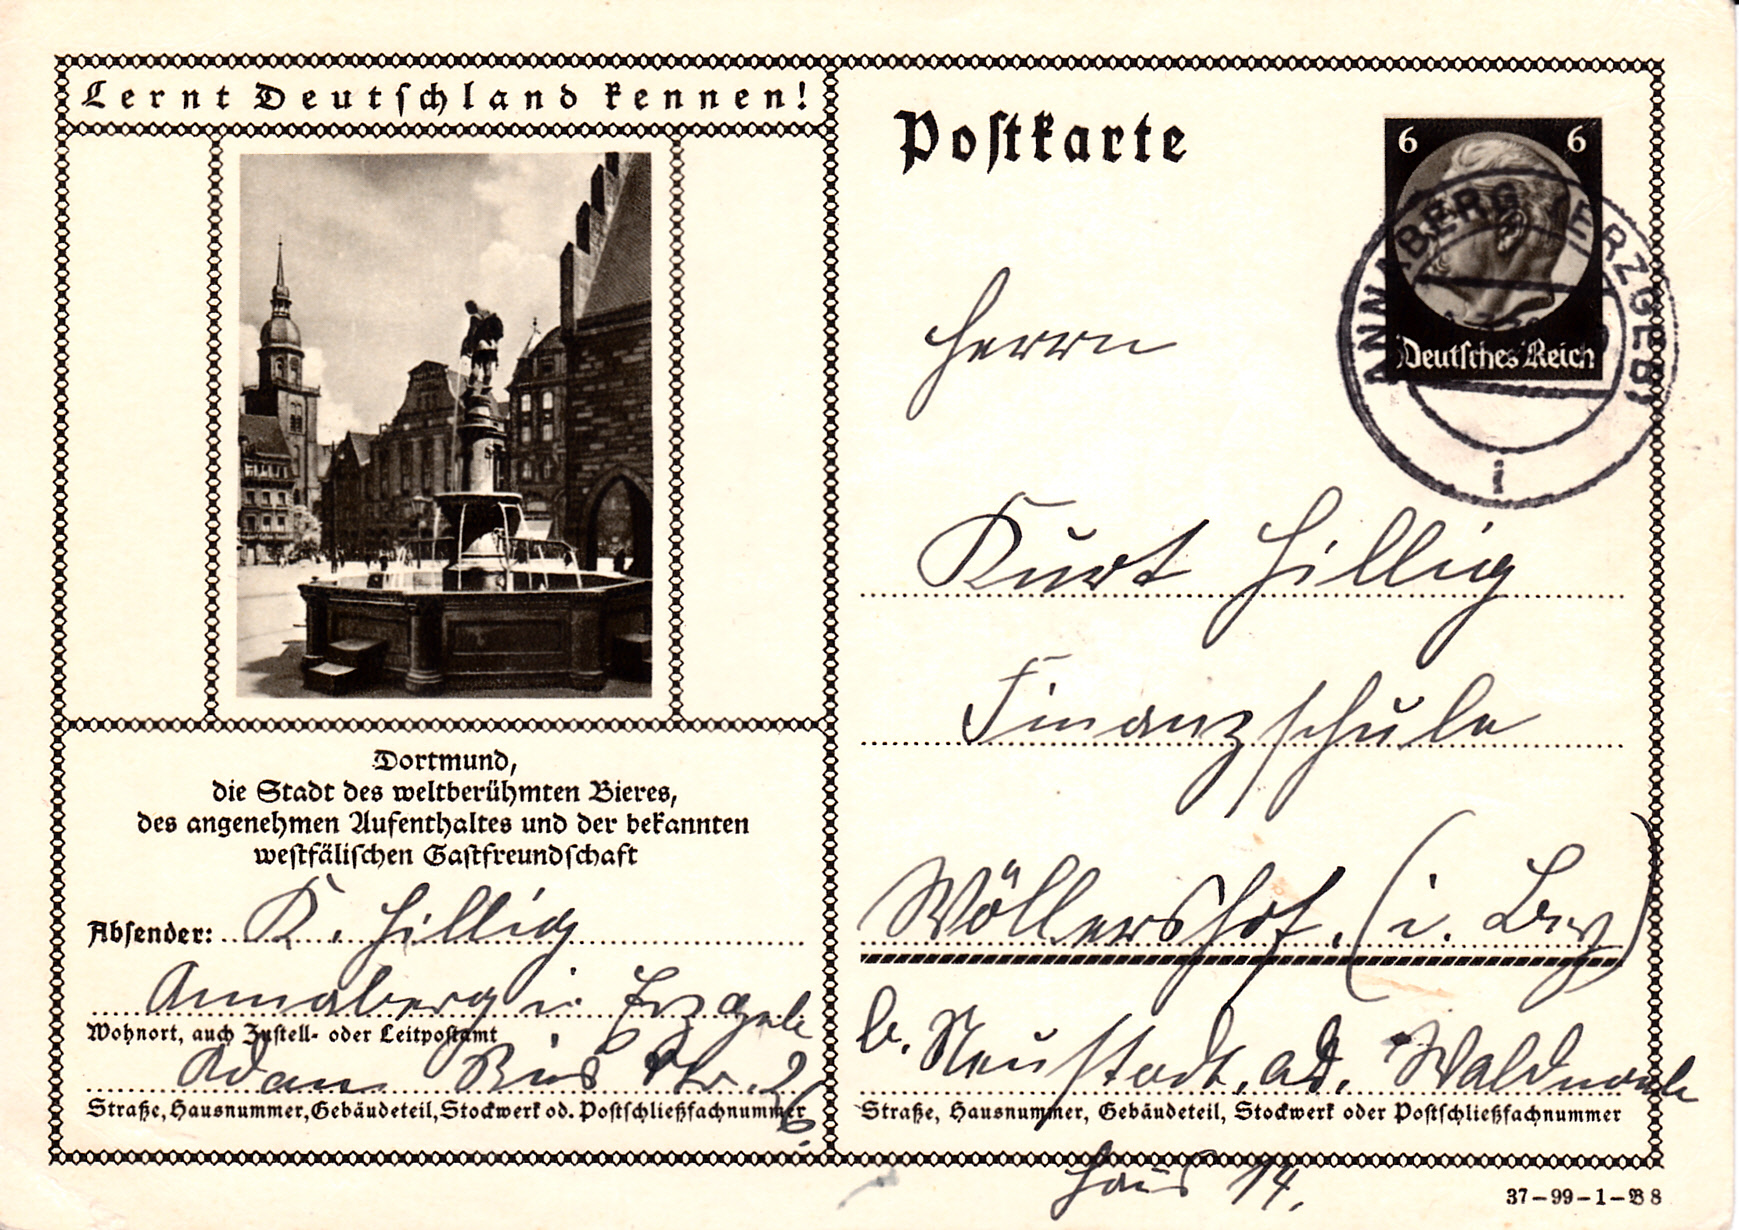 Lernt Deutschland kennen!
Dortmund,
die Stadt des weltberühmten Bieres,
des angenehmen Aufenthaltes und der bekannten
westfälischen Gastfreundschaft
Absender: K. Hillig
Annaberg i. Erzgeb
Wohnort, auch Zustell- oder Leitpostamt
Adam Ries Str. 26.
Straße, Hausnummer, Gebäudeteil, Stockwerk od. Postschließfachnummer
Postkarte
6 6
Deutsches Reich
ANNABERG (ERZGEB)
i
Herrn
Kurt Hillig
Finanzschule
Wöllershof. (i. Bay)
b. Neustadt. ad. Waldnaab
Straße, Hausnummer, Gebäudeteil, Stockwerk oder Postschließfachnummer
Haus 14.
37-99-1-B 8